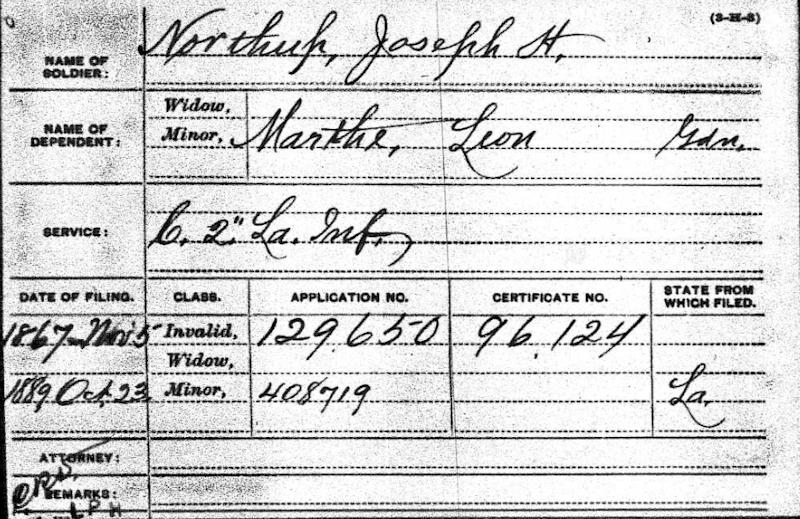 (3-H-3)
NAME OF SOLDIER: Northup, Joseph H.
NAME OF DEPENDENT: Widow,
Minor, Marthe, Leon Gdn.
SERVICE: C. 2" La. Inf.,
DATE OF FILING. CLASS. APPLICATION NO. CERTIFICATE NO. STATE FROM WHICH FILED.
1867 Nov 5 Invalid, 129.650 96.124
Widow,
1889 Oct. 23 Minor, 408719 La.
ATTORNEY:
REMARKS:
L P H